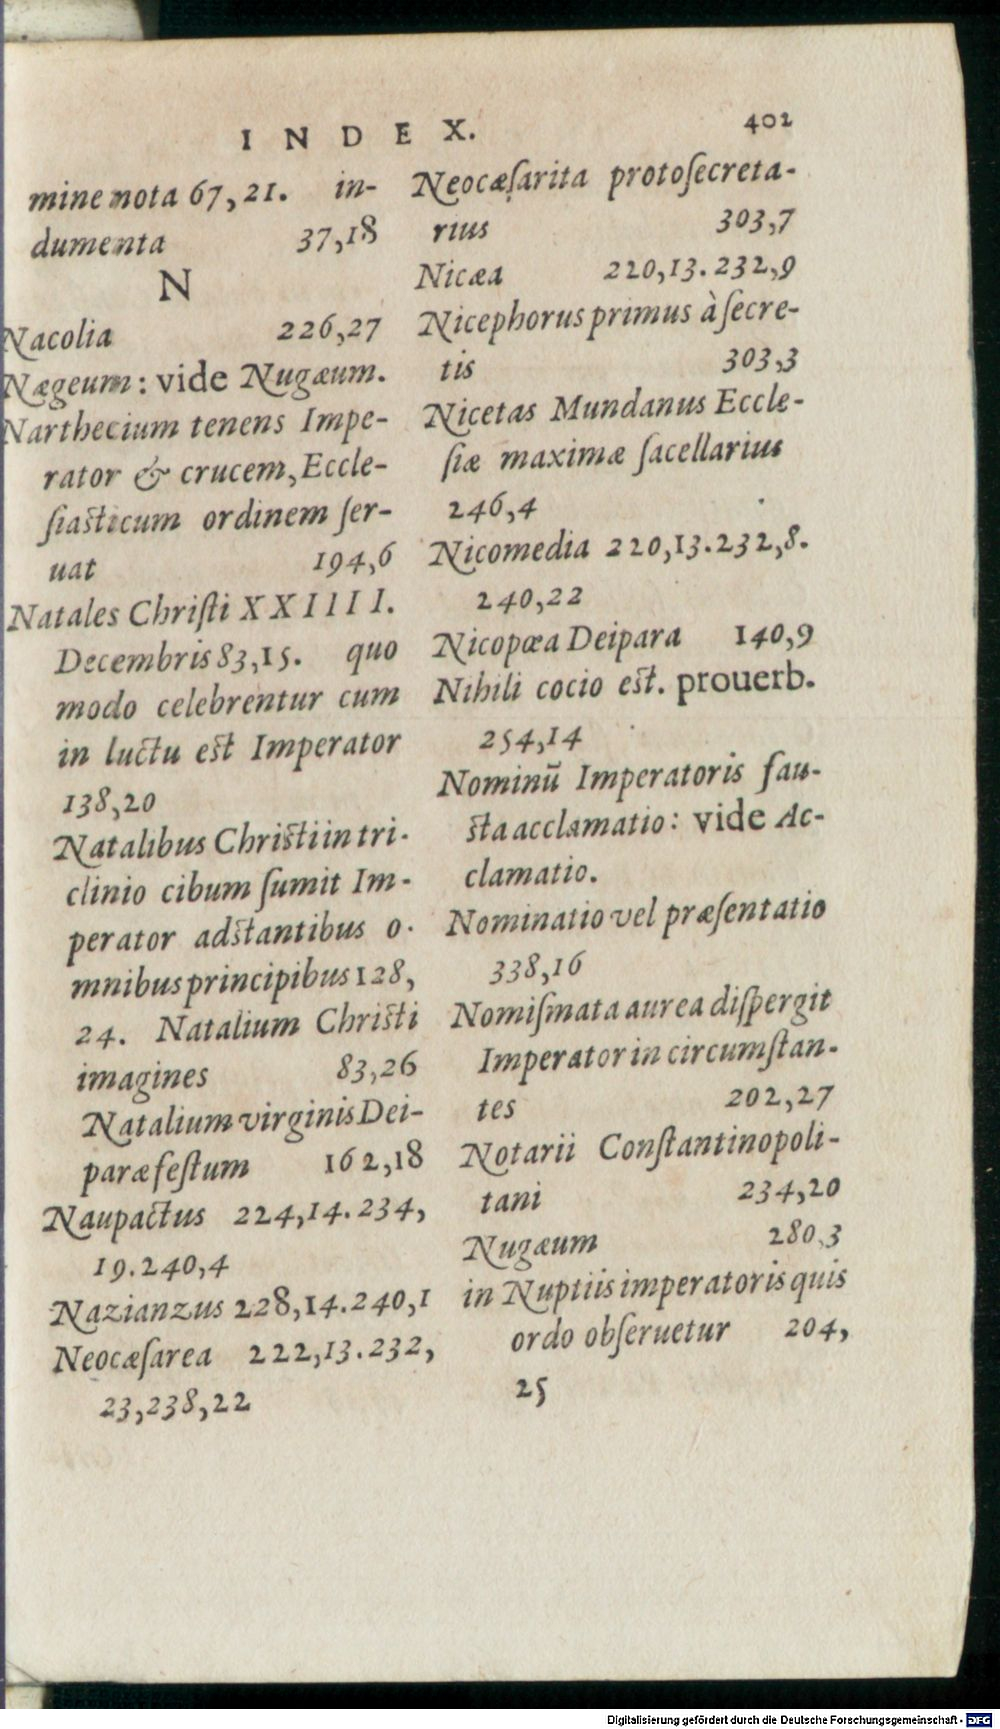 INDEX. 402
mine nota 67,21. in-
dumenta 37,18
N
Nacolia 226,27
Nægeum: vide Nugæum.
Narthecium tenens Impe-
rator & crucem, Eccle-
siasticum ordinem ser-
uat 194,6
Natales Christi XXIIII.
Decembris 83,15. quo
modo celebrentur cum
in luctu est Imperator
138,20
Natalibus Christi in tri-
clinio cibum sumit Im-
perator adstantibus o-
mnibus principibus 128,
24. Natalium Christi
imagines 83,26
Natalium virginis Dei-
paræ festum 162,18
Naupactus 224,14.234,
19.240,4
Nazianzus 228,14.240,1
Neocæsarea 222,13.232,
23,238,22
Neocæsarita protosecreta-
rius 303,7
Nicæa 220,13.232,9
Nicephorus primus à secre-
tis 303,3
Nicetas Mundanus Eccle-
siæ maximæ sacellarius
246,4
Nicomedia 220,13.232,8.
240,22
Nicopœa Deipara 140,9
Nihili cocio est. prouerb.
254,14
Nominū Imperatoris fau-
sta acclamatio: vide Ac-
clamatio.
Nominatio vel præsentatio
338,16
Nomismata aurea dispergit
Imperator in circumstan-
tes 202,27
Notarii Constantinopoli-
tani 234,20
Nugæum 280,3
in Nuptiis imperatoris quis
ordo obseruetur 204,
25
Digitalisierung gefördert durch die Deutsche Forschungsgemeinschaft - DFG